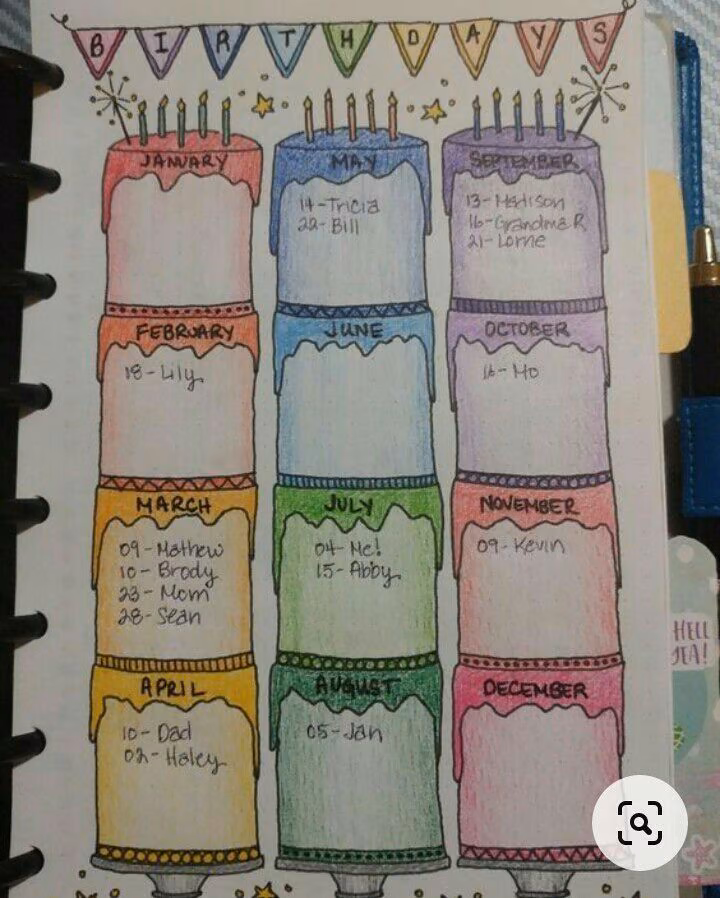 BIRTHDAYS
JANUARY
FEBRUARY
18-Lily
MARCH
09-Mathew
10-Brody
23-Mom
28-Sean
APRIL
10-Dad
02-Haley
MAY
14-Tricia
22-Bill
JUNE
JULY
04-Me!
15-Abby
AUGUST
05-Jan
SEPTEMBER
13-Madison
16-Grandma R
21-Lorne
OCTOBER
16-Mo
NOVEMBER
09-Kevin
DECEMBER
HELL
YEA!